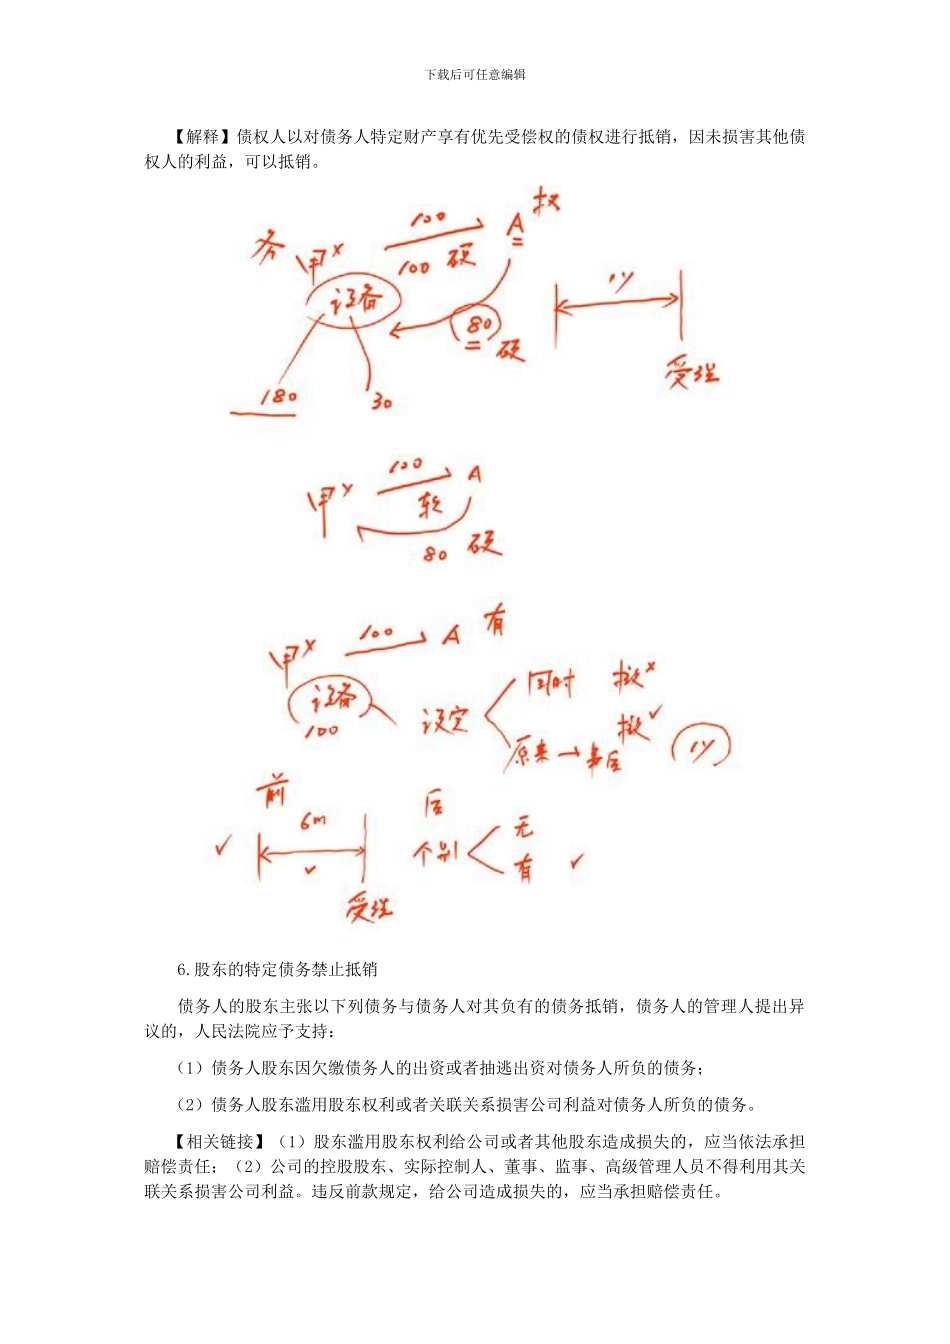 下载后可任意编辑
【解释】债权人以对债务人特定财产享有优先受偿权的债权进行抵销，因未损害其他债
权人的利益，可以抵销。
务 甲× 100 A 权
100 硬
设备
80 硬
1y
受理
180 30
甲× 100 A
软
80 硬
甲× 100 A 有
设备
100
设定
同时 撤×
原来→事后 撤✓ 1y
前 后
6m
✓ ✓
受理
个别 无
有 ✓
6.股东的特定债务禁止抵销
债务人的股东主张以下列债务与债务人对其负有的债务抵销，债务人的管理人提出异
议的，人民法院应予支持：
（1）债务人股东因欠缴债务人的出资或者抽逃出资对债务人所负的债务；
（2）债务人股东滥用股东权利或者关联关系损害公司利益对债务人所负的债务。
【相关链接】（1）股东滥用股东权利给公司或者其他股东造成损失的，应当依法承担
赔偿责任；（2）公司的控股股东、实际控制人、董事、监事、高级管理人员不得利用其关
联关系损害公司利益。违反前款规定，给公司造成损失的，应当承担赔偿责任。